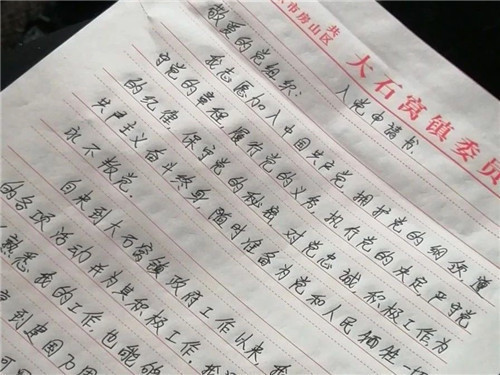 共
京市房山区
大石窝镇委员
入党申请书
敬爱的党组织:
我志愿加入中国共产党,拥护党的纲领,遵
守党的章程,履行党的义务,执行党的决定,严守党
的纪律,保守党的秘密,对党忠诚,积极工作,为
共产主义奋斗终身,随时准备为党和人民牺牲一切
永不叛党。
自来到大石窝镇政府工作以来,
的各项活动并为其积极工作,
熟悉我的工作也能够
到建国